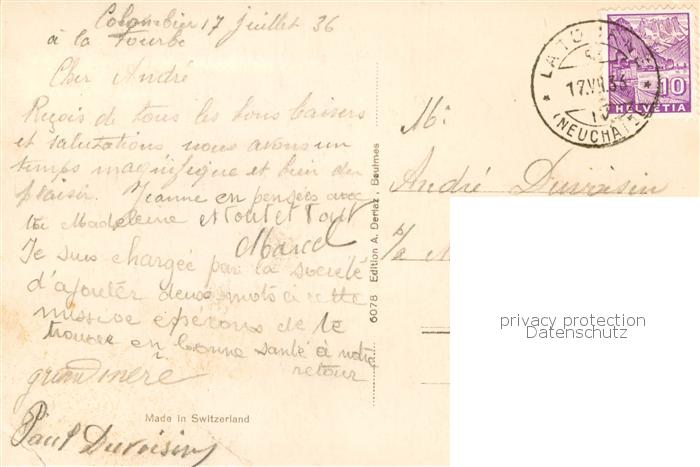 Colombier 17 juillet 36
à la Tourbe
Cher André
Reçois de tous les bons baisers
et salutations nous avons un
temps magnifique et bien du
plaisir. Jeanne en pensées avec
toi Madeleine
Marcel
Je suis chargée par la société
d'ajouter deux mots à cette
missive espérons de te
trouver en bonne santé à notre
retour
grand mère
Paul Duvoisin
Made in Switzerland
6078 Edition A. Deriaz, Baulmes
17.VII.36
(NEUCHAT
10
HELVETIA
Mr
André Duvoisin
privacy protection
Datenschutz